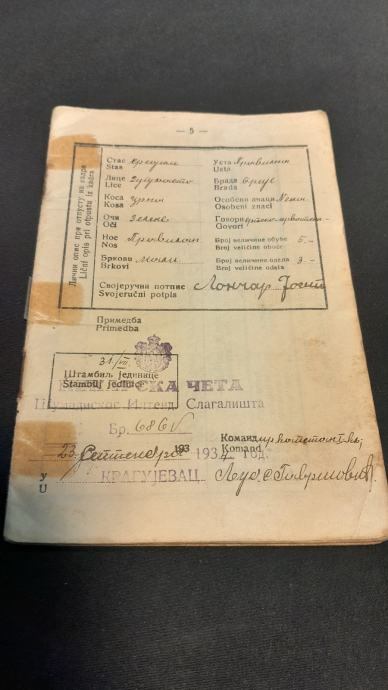 — 5 —
Лични опис при отпусту из кадра
Lični opis pri otpustu iz kadra
Стас
Stas
Лице
Lice
Коса црна
Kosa
Очи
Oči
Нос Правилан
Nos
Бркови
Brkovi
Уста Правилна
Usta
Брада брије
Brada
Особени знаци Нема
Osobeni znaci
Говори српско-хрватски
Govori
Број величине обуће 5.-
Broj veličine obuće
Број величине одела 3.-
Broj veličine odela
Својеручни потпис Лончар Јосип
Svojeručni potpis
Примедба
Primedba
31/VII
Штамбиљ јединице
Stambilj jedinice
СКА ЧЕТА
Слагалишта
Бр. 686
23 Септембра 193 год.
У КРАГУЈЕВАЦ
U
Командир
Komand